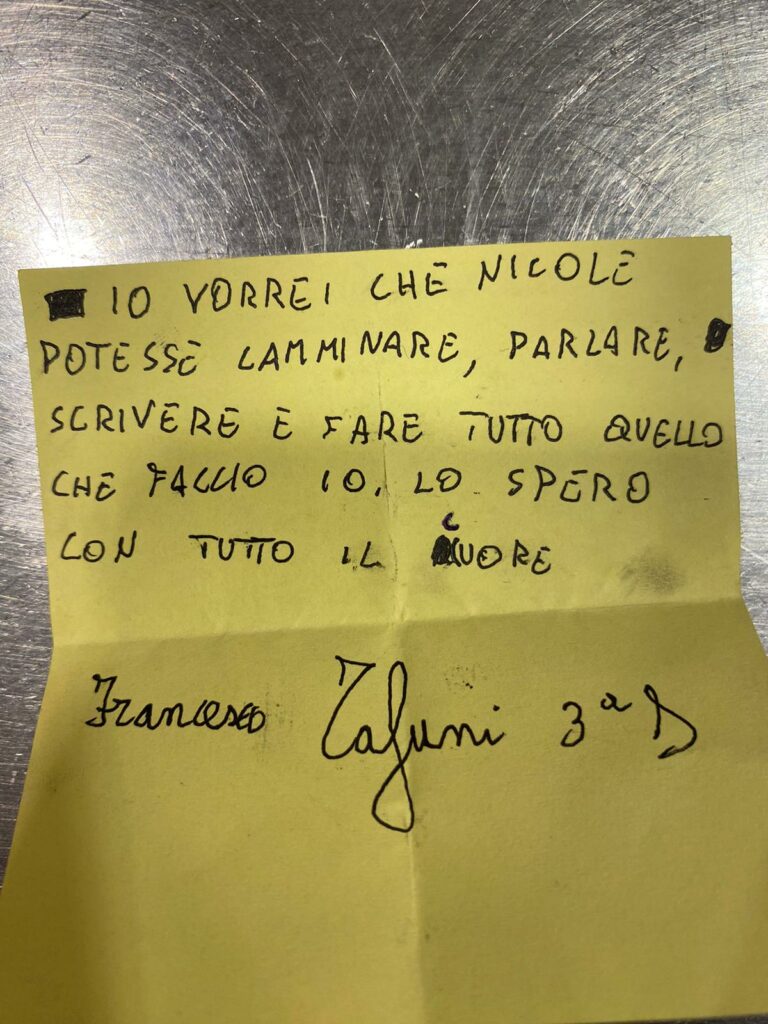 IO VORREI CHE NICOLE
POTESSE CAMMINARE, PARLARE,
SCRIVERE E FARE TUTTO QUELLO
CHE FACCIO IO. LO SPERO
CON TUTTO IL CUORE
Francesco Tafuni 3ª D